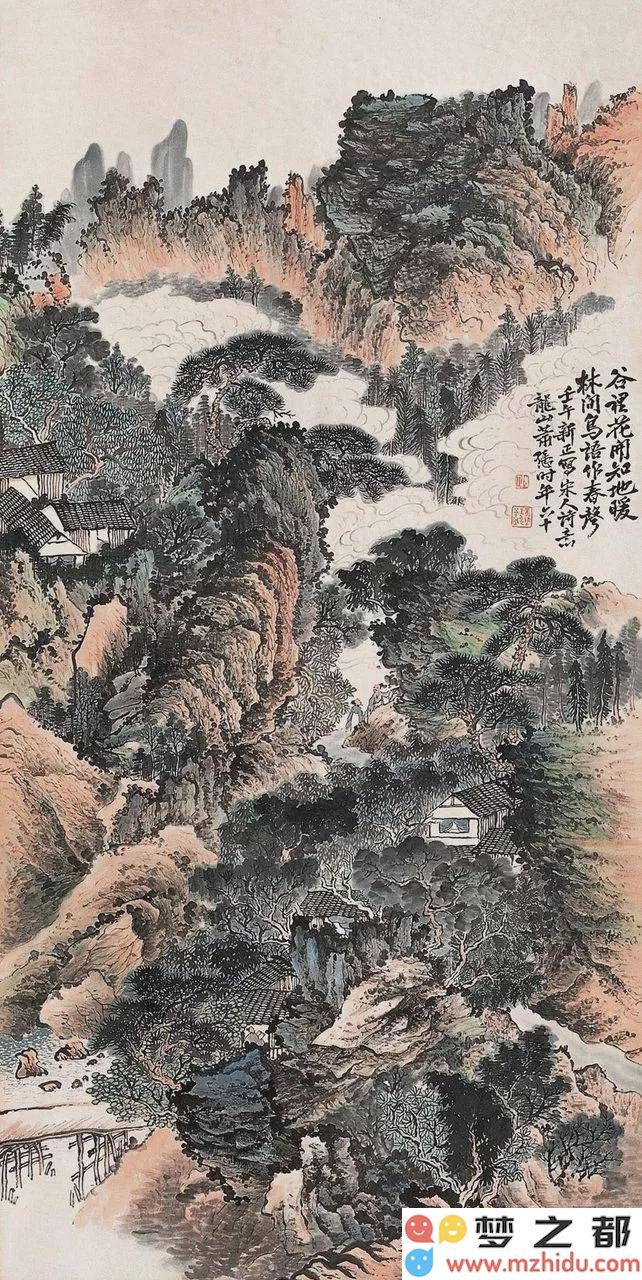 谷裡花開知地暖
林間鳥語作春聲
壬午新正寫宋人詩意
龍山蕭愻時年六十
梦之都
www.mzhidu.com